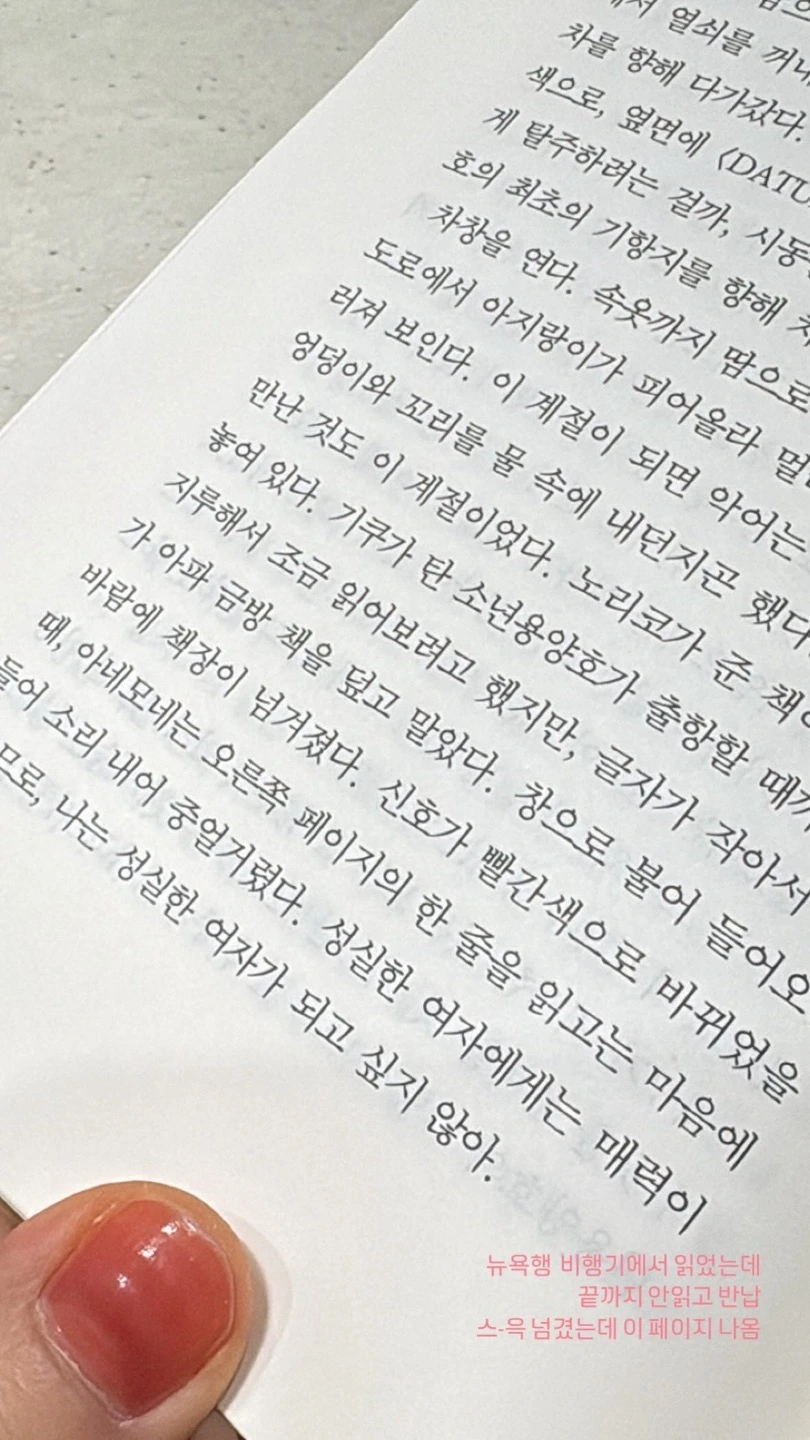 서 열쇠를 꺼내
차를 향해 다가갔다.
색으로, 옆면에 〈DATU
게 탈주하려는 걸까, 시동
호의 최초의 기항지를 향해
차창을 연다. 속옷까지 땀으로
도로에서 아지랑이가 피어올라
러져 보인다. 이 계절이 되면 악어는
엉덩이와 꼬리를 물 속에 내던지곤 했다
만난 것도 이 계절이었다. 노리코가 준 책
놓여 있다. 기쿠가 탄 소년용양호가 출항할 때
지루해서 조금 읽어보려고 했지만, 글자가 작아서
가 아파 금방 책을 덮고 말았다. 창으로 불어 들어오
바람에 책장이 넘겨졌다. 신호가 빨간색으로 바뀌었을
때, 아네모네는 오른쪽 페이지의 한 줄을 읽고는 마음에
들어 소리 내어 중얼거렸다. 성실한 여자에게는 매력이
므로, 나는 성실한 여자가 되고 싶지 않아.
뉴욕행 비행기에서 읽었는데
끝까지 안읽고 반납
스-윽 넘겼는데 이 페이지 나옴